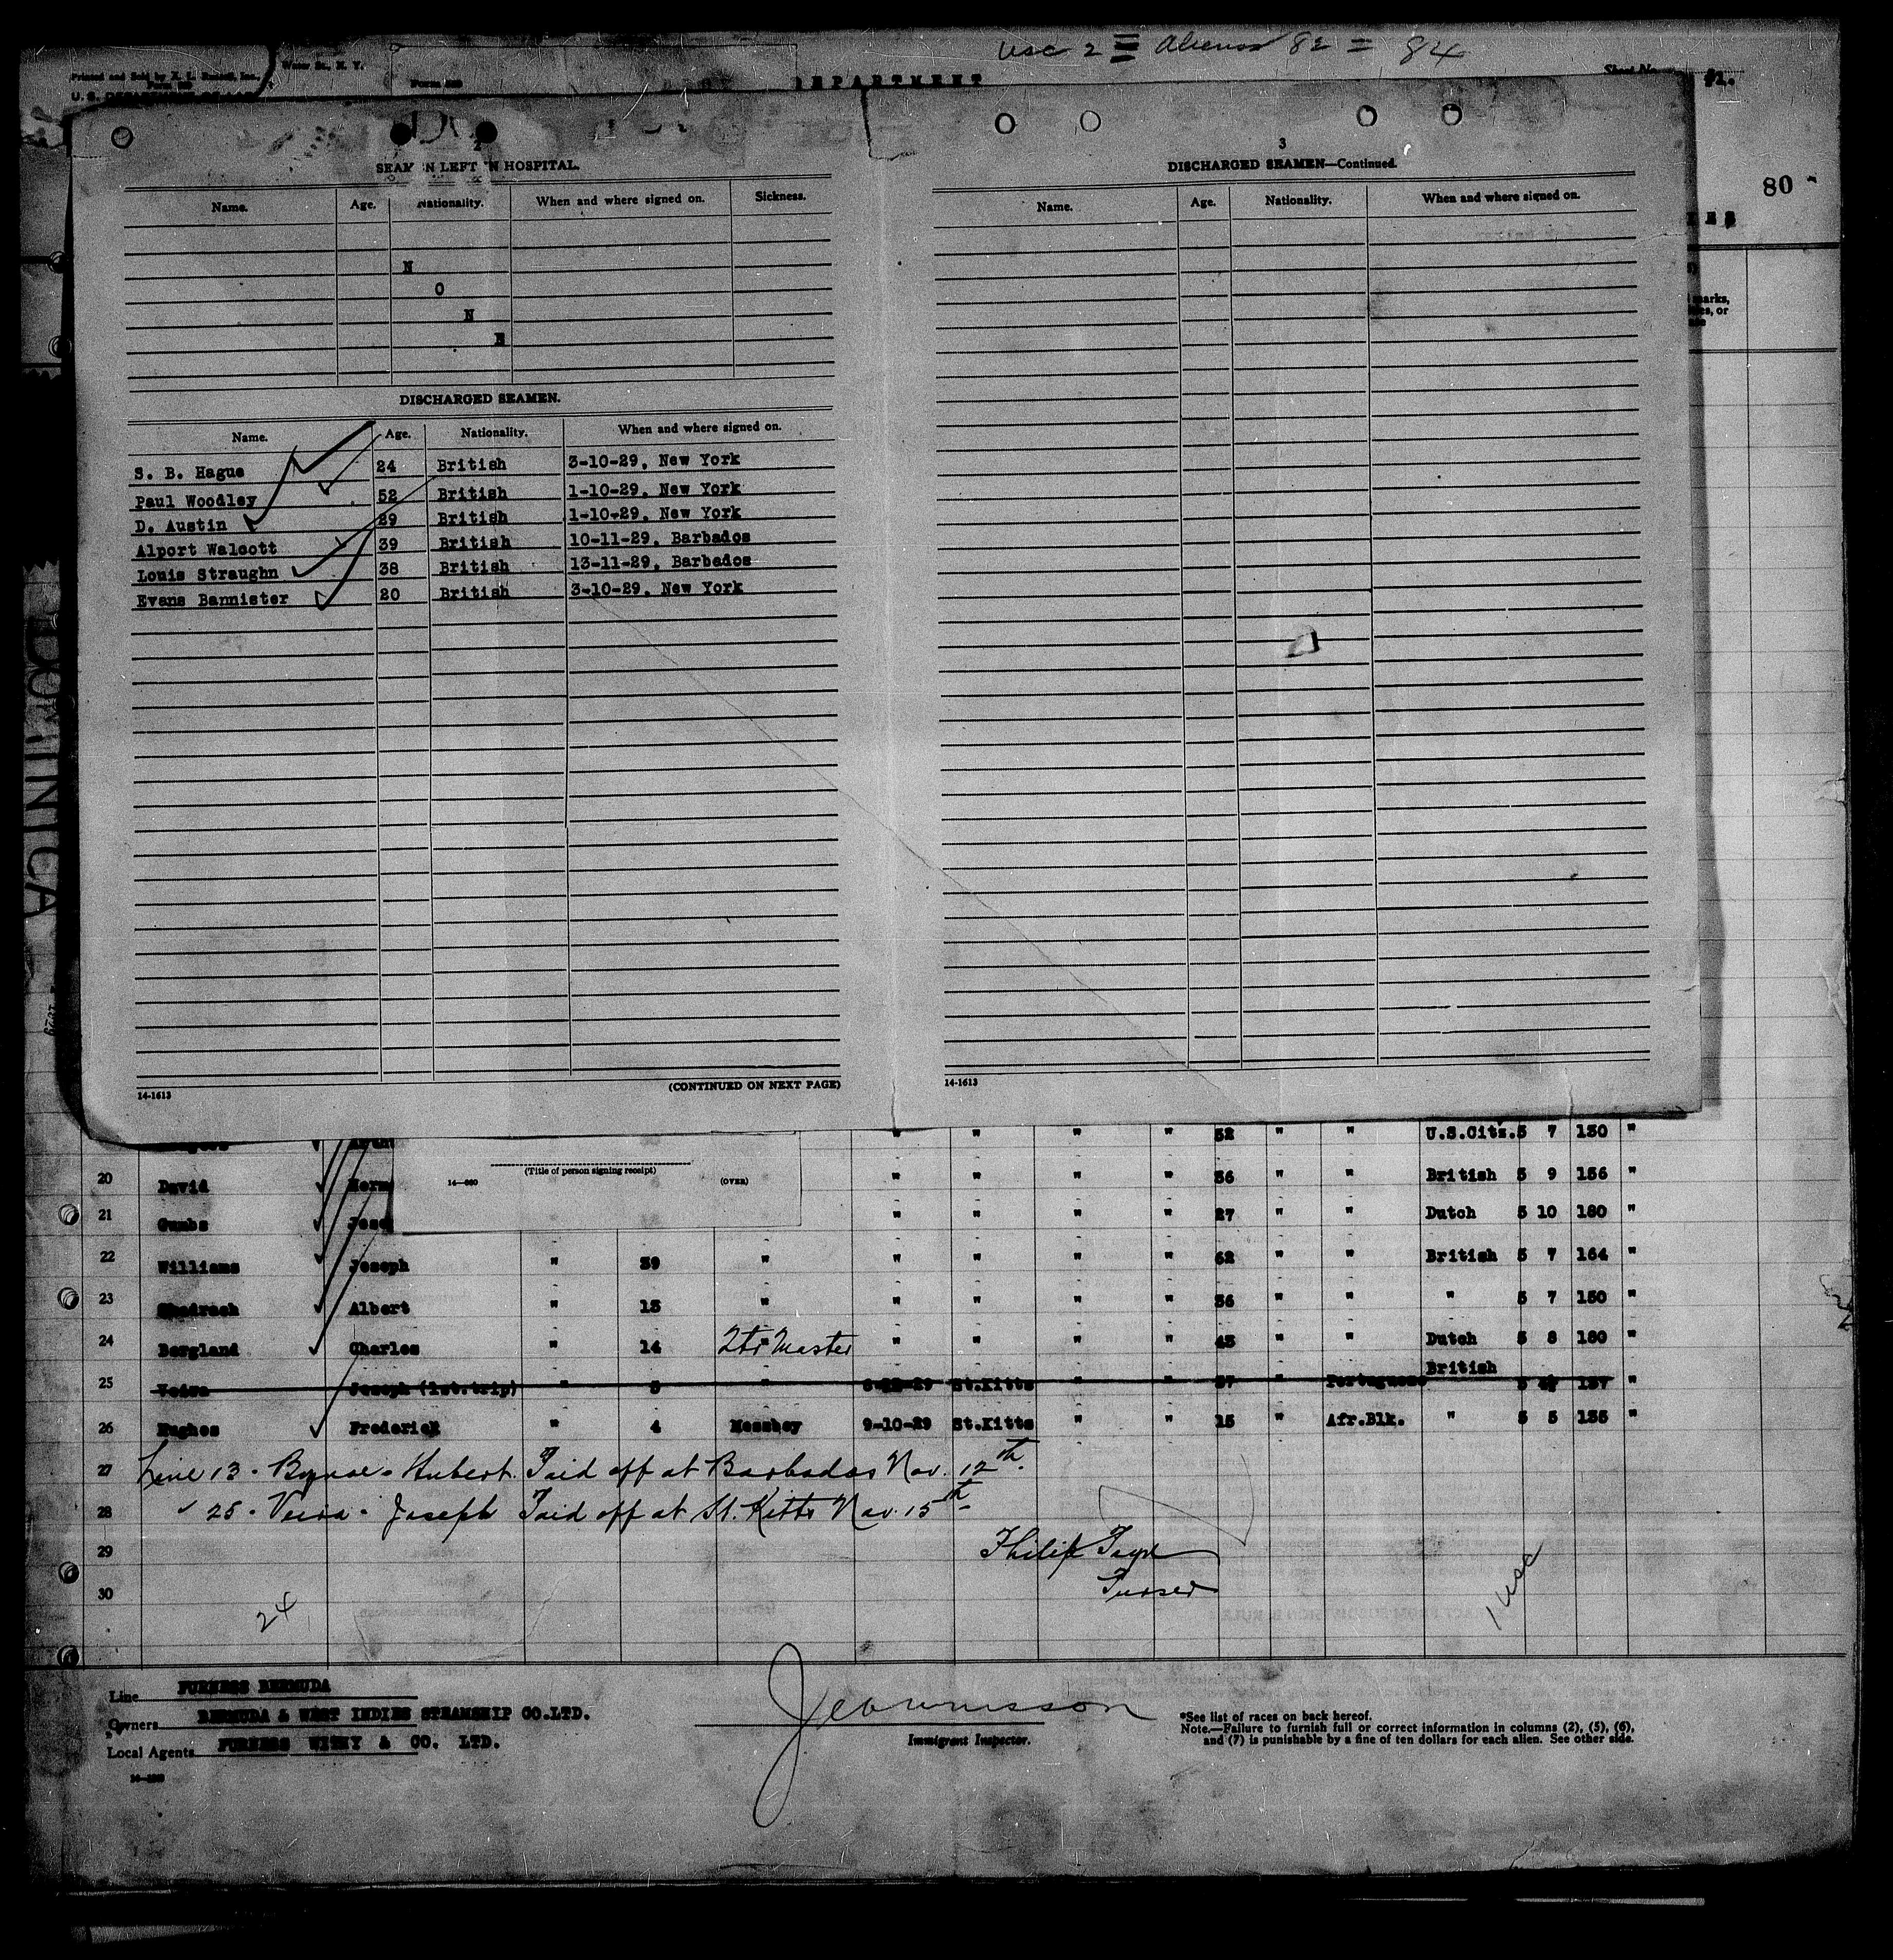 USC 2 = Aliens 82 = 84
Printed and Sold by
Water St., N. Y.
DEPARTMENT
Sheet No.
80
2
SEAMEN LEFT IN HOSPITAL.
Name. Age. Nationality. When and where signed on. Sickness.
N
O
N
E
DISCHARGED SEAMEN.
Name. Age. Nationality. When and where signed on.
S. B. Hague 24 British 3-10-29, New York
Paul Woodley 52 British 1-10-29, New York
D. Austin 29 British 1-10-29, New York
Alport Walcott 39 British 10-11-29, Barbados
Louis Straughn 38 British 13-11-29, Barbados
Evans Bannister 20 British 3-10-29, New York
14-1613
(CONTINUED ON NEXT PAGE)
3
DISCHARGED SEAMEN—Continued.
Name. Age. Nationality. When and where signed on.
14-1613
marks,
or
DOMINICA
(Title of person signing receipt)
(OVER)
" " " " 52 " " U.S.Citz. 5 7 130 "
20 David " " " " 36 " " British 5 9 156 "
21 Gumbs " " " " 27 " " Dutch 5 10 180 "
22 Williams Joseph " 39 " " " " " 62 " " British 5 7 164 "
23 Shadrach Albert " 15 " " " " " 36 " " " 5 7 150 "
24 Bergland Charles " 14 Qtr Master " " " " 43 " " Dutch 5 8 180 "
25 Veira Joseph (1st.trip) " 3 " St.Kitts " " 37 " Portuguese British 5 137 "
26 Hughes Frederick " 4 Messboy 9-10-29 St.Kitts " " 15 " Afr.Blk. " 5 5 135 "
27 Line 13 - Bynoe - Hubert. Paid off at Barbados Nov. 12th.
28 " 25 - Veira - Joseph Paid off at St. Kitts Nov. 15th
29 Philip
30 Purser
24
1 USC
Line FURNESS BERMUDA
Owners BERMUDA & WEST INDIES STEAMSHIP CO.LTD.
Local Agents FURNESS WITHY & CO. LTD.
Immigrant Inspector.
*See list of races on back hereof.
Note.—Failure to furnish full or correct information in columns (2), (5), (6),
and (7) is punishable by a fine of ten dollars for each alien. See other side.